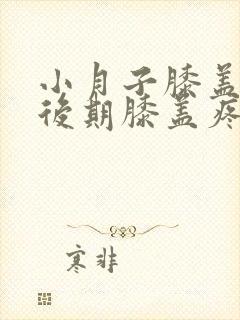 小月子膝盖
後期膝盖疼
寒非